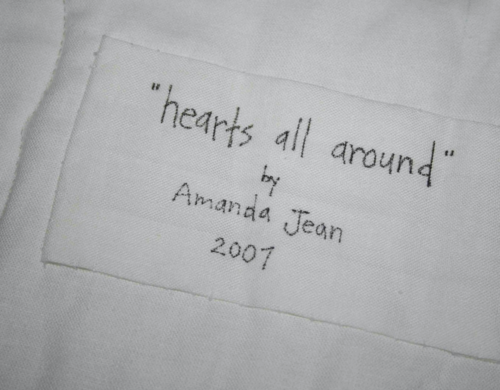 "hearts all around"
by
Amanda Jean
2007